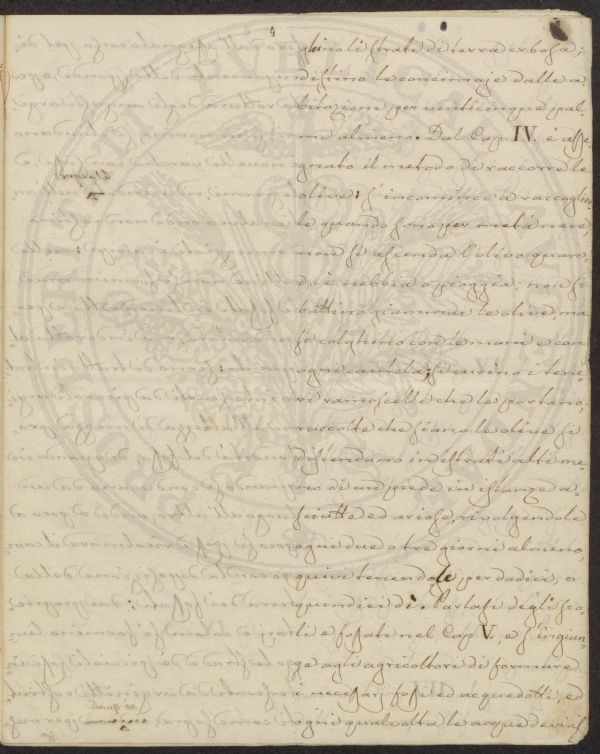 4
gliino li strati di terra erbosa;
distino le concimaje dalle a-
bitazioni per venticinque pal-
mi almeno. Dal Cap. IV. è asse-
gnato il metodo di raccorre le
olive: s'incomince a raccoglier-
le quando sono per metà nere,
non si ascenda l'olivo quan-
do è nebbia o pioggia, non si
battino giammai le olive, ma
si colghino con le mani e con
ogni cautela; si curvino i tene-
ri ramoscelli che le portano,
raccolte che siano le olive si
distendano in istrati alti me-
no di un piede in istanze a-
sciutte ed ariose, rivolgendole
ogni due o tre giorni almeno,
quivi tenendole per dodici, o
quindici dì. Parlasi degli sco-
li e fossati nel Cap. V., e s'ingiun-
ge agli agricoltori di formare
i necessarj fossi ed acquedotti, ed
ogni qualvolta le acque devias-